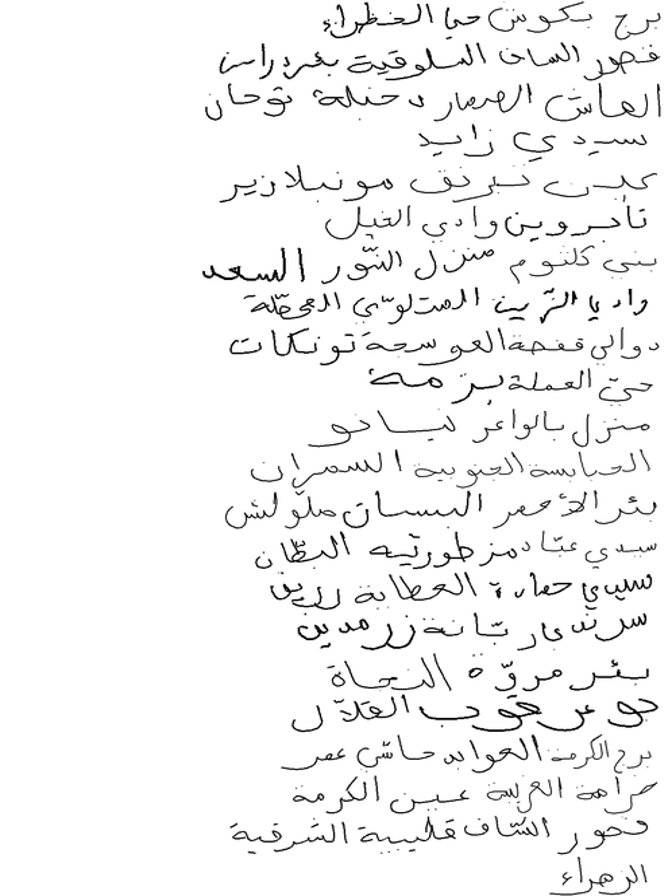 برج بكوش حي الخظراء
قصور الساف السلوقية بئر دراسن
الماش الصمار دخيلة توجان
سيدي زايد
عين تبرنق مونبلازير
تاجروين وادي الغيل
بني كلثوم منزل النّور السعد
واد يا الزّين المتلوّي المحطّلة
دوالي قفصة العوسجة تونكات
حيّ العملة بزمة
منزل بالواعر نيانو
الحبابسة الجنوبية السمران
بئر الأحمر البستان ملّولش
سيدي عبّاد مزطوريّة البطّان
سيدي حمادة العطاية رزين
سرندبار تبّانة زرمدين
بئر مروّة النجاة
بوعرقوب القلاّل
برج الكرمة العوابد حاسّي عمر
خرامة العريسة عين الكرمة
قصور السّاف قليبية الشرقية
الزهراء